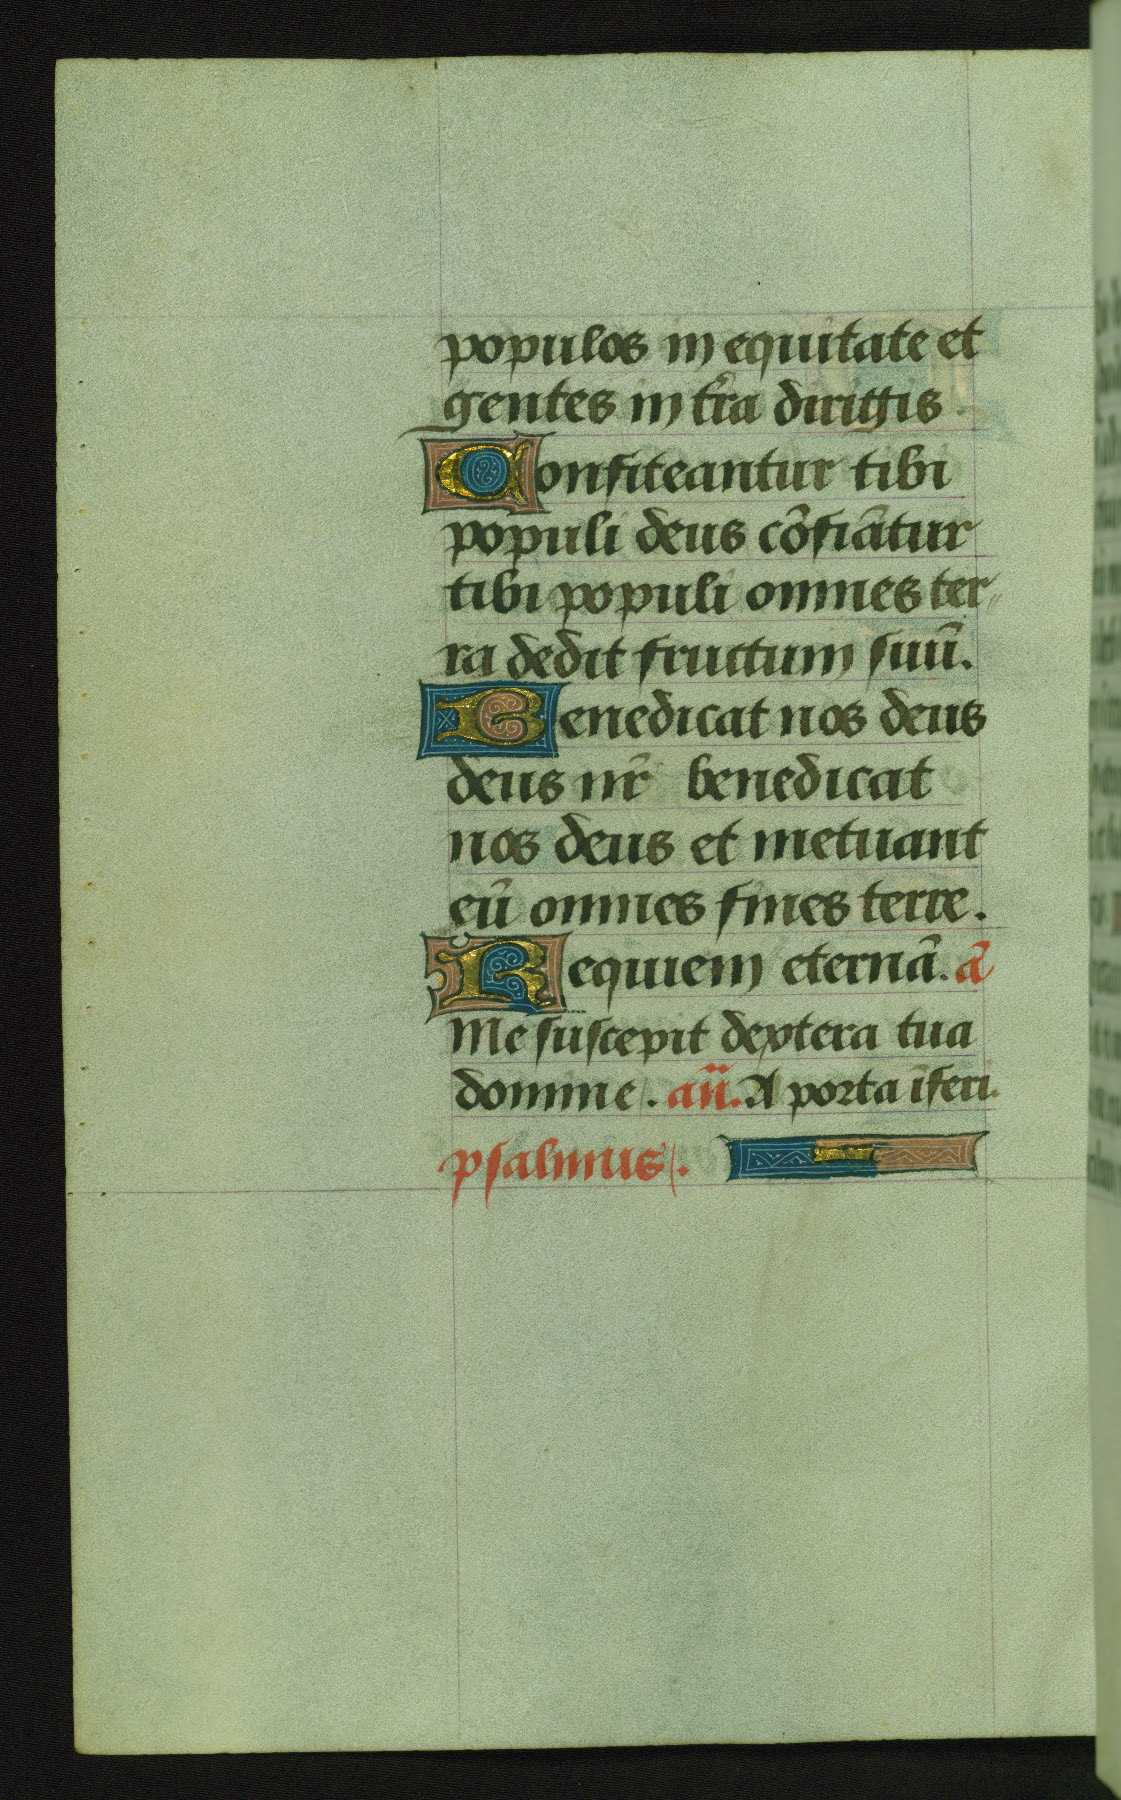 populos in equitate et
gentes in tr̃a dirigis
Confiteantur tibi
populi deus cõfiãtur
tibi populi omnes ter
ra dedit fructum suũ.
Benedicat nos deus
deus nr̃ benedicat
nos deus et metuant
eũ omnes fines terre.
Requiem eternã. ã
Me suscepit dextera tua
domine. añ. A porta ĩferi.
psalmus.